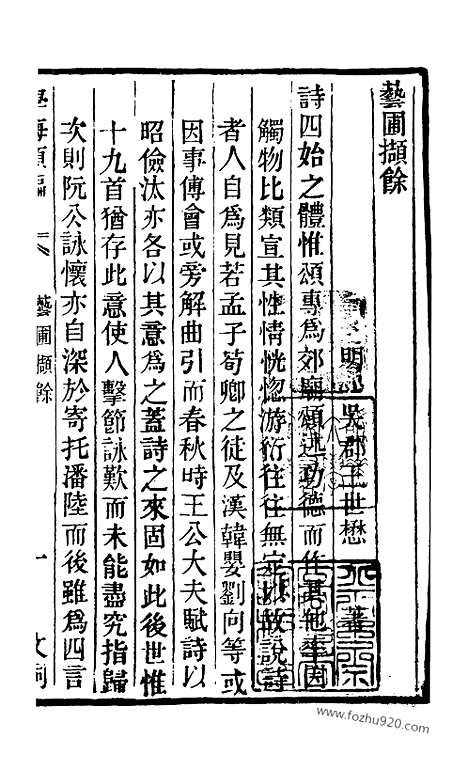 藝圃擷餘
明 吳郡王世懋 著
詩四始之體惟頌專為郊廟頌述功德而作其他率因
觸物比類宣其性情恍惚游衍往往無定以故說詩
者人自為見若孟子荀卿之徒及漢韓嬰劉向等或
因事傅會或旁解曲引而春秋時王公大夫賦詩以
昭儉汰亦各以其意為之蓋詩之來固如此後世惟
十九首猶存此意使人擊節詠歎而未能盡究指歸
次則阮公詠懷亦自深於寄托潘陸而後雖為四言
學海類編
藝圃擷餘
一
文詞
www.fozhu920.com